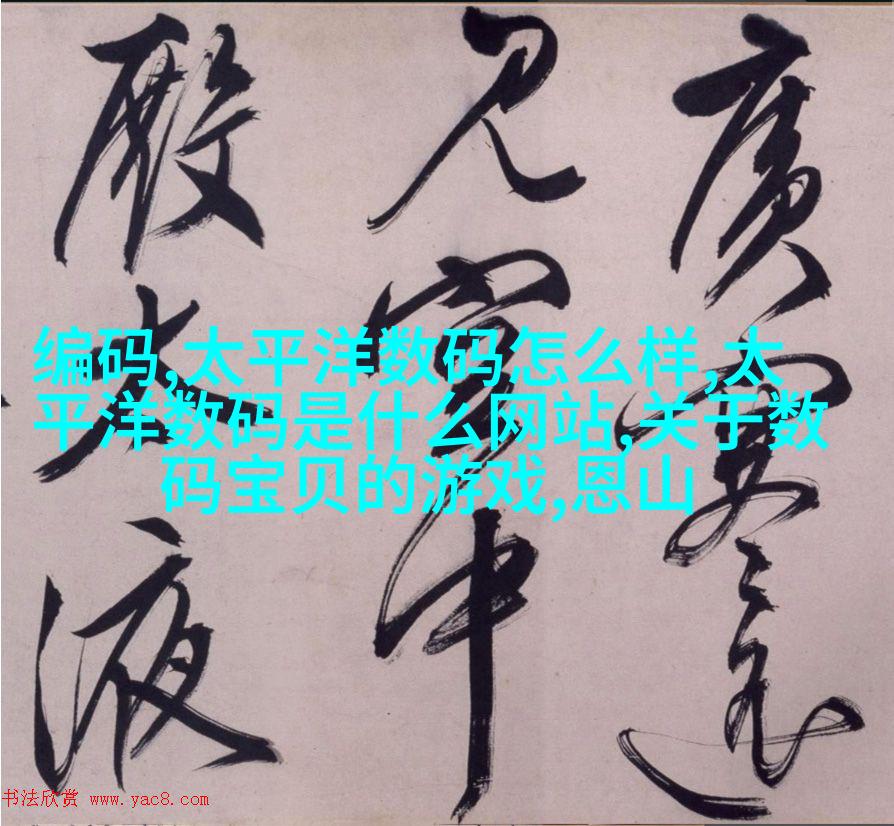 廣寒
見空中
殿太液
编码,太平洋数码怎么样,太
平洋数码是什么网站,关于数
码宝贝的游戏,恩山
书法欣赏 www.yac8.com